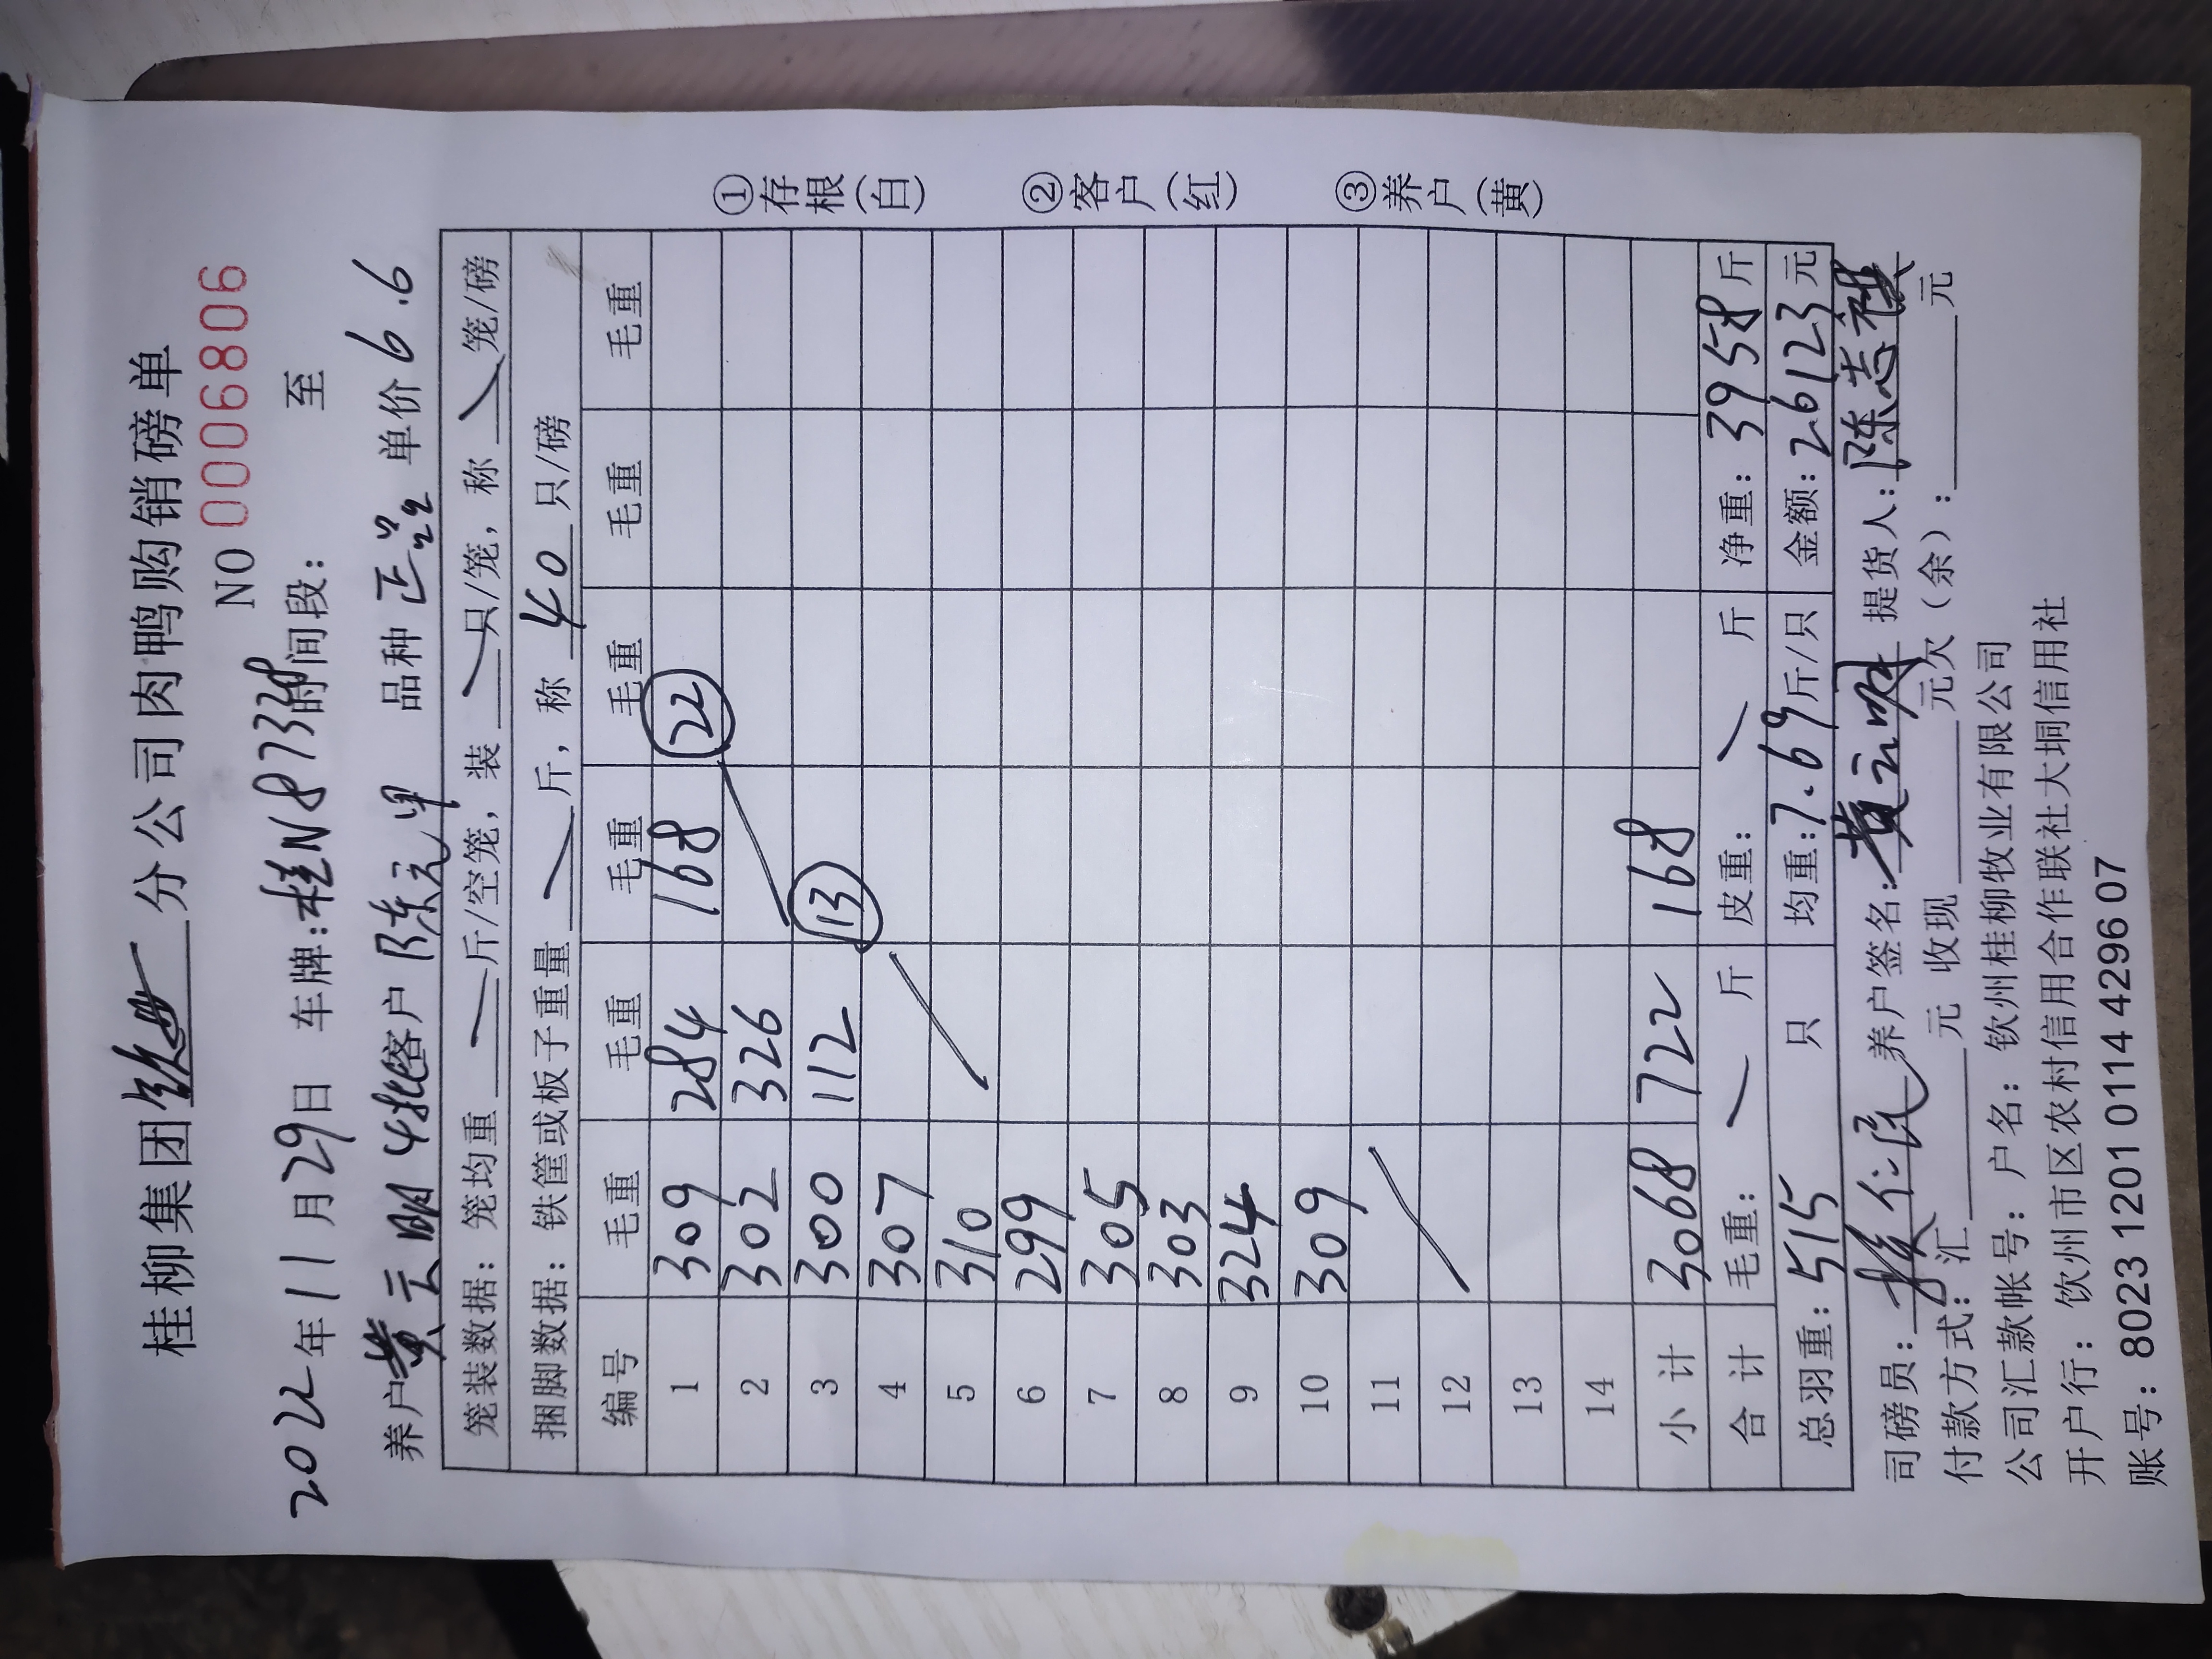 桂柳集团钦州分公司肉鸭购销磅单
NO 0006806
2022年11月29日 车牌:桂N8733 时间段: 至
养户黄云明4批 客户陈元 品种正品 单价6.6
笼装数据: 笼均重 斤/空笼, 装 只/笼, 称 笼/磅
捆脚数据: 铁筐或板子重量 斤, 称 40 只/磅
编号 毛重 毛重 毛重 毛重 毛重 毛重
1 309 284 168 22
2 302 326
3 300 112 13
4 307
5 310
6 299
7 305
8 303
9 324
10 309
11
12
13
14
小计 3068 722 168
合计 毛重: 斤 皮重: 斤 净重: 3958斤
总羽重: 515 只 均重: 7.69斤/只 金额: 26123元
司磅员: 养户签名: 黄云明 提货人: 陈志祺
付款方式: 汇 元 收现 元欠(余): 元
公司汇款帐号: 户名: 钦州桂柳牧业有限公司
开户行: 钦州市区农村信用合作联社大垌信用社
账号: 8023 1201 0114 4296 07
①存根(白)
②客户(红)
③养户(黄)